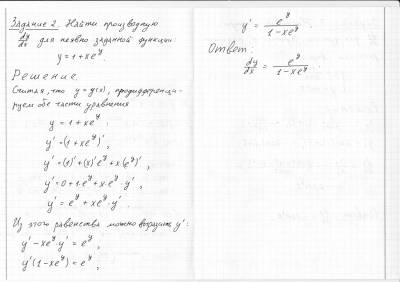 Задание 2. Найти производную
dy/dx для неявно заданной функции:
y = 1 + xe^y.
Решение.
Считая, что y = y(x), продифференци-
руем обе части уравнения
y = 1 + xe^y.
y' = (1 + xe^y)',
y' = (1)' + (x)'e^y + x(e^y)',
y' = 0 + 1·e^y + x·e^y·y',
y' = e^y + xe^y·y'.
Из этого равенства можно выразить y':
y' - xe^y·y' = e^y,
y'(1 - xe^y) = e^y,
y' = e^y/(1 - xe^y).
Ответ:
dy/dx = e^y/(1 - xe^y).